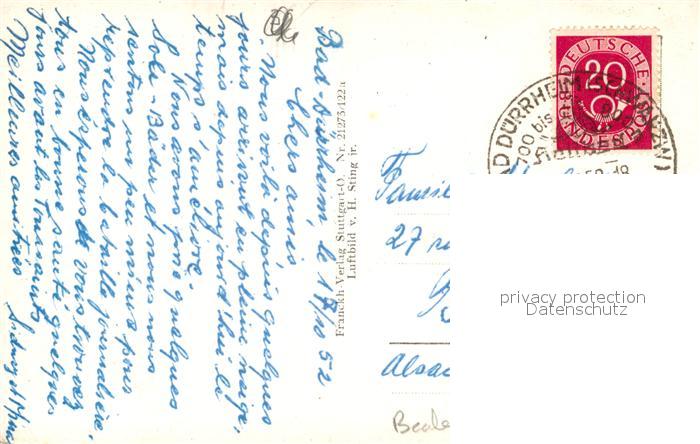 Bad Dürrheim, le 17/10 52
Chers amis
Nous voilà depuis quelques
jours arrivés et en pleine neige,
mais depuis aujourd'hui le
temps s'améliore.
Nous avons pris quelques
Sole-Bäder et nous nous
sentons un peu mieux pour
reprendre la bataille journalière.
Nous espérons de vous trouver
tous en bonne santé quelques
jours avant la Toussaint
Meilleures amitiés
Franckh-Verlag Stuttgart-O. Nr. 21273/122a
Luftbild v. H. Sting jr.
DEUTSCHE
20
BUNDESPOST
BAD DÜRRHEIM
700 bis
52-18
Famil
27 ru
Alsac
privacy protection
Datenschutz